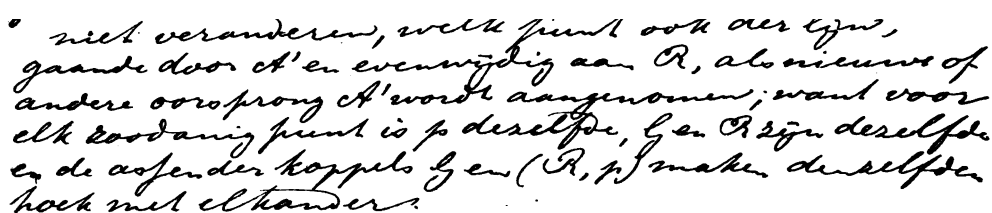 niet veranderen, welk punt ook der lijn,
gaande door A' en evenwijdig aan R, als nieuwe of
andere oorsprong A' wordt aangenomen; want voor
elk zoodanig punt is p dezelfde, G en R zijn dezelfde
en de assen der koppels G en (R, p) maken denzelfden
hoek met elkander.